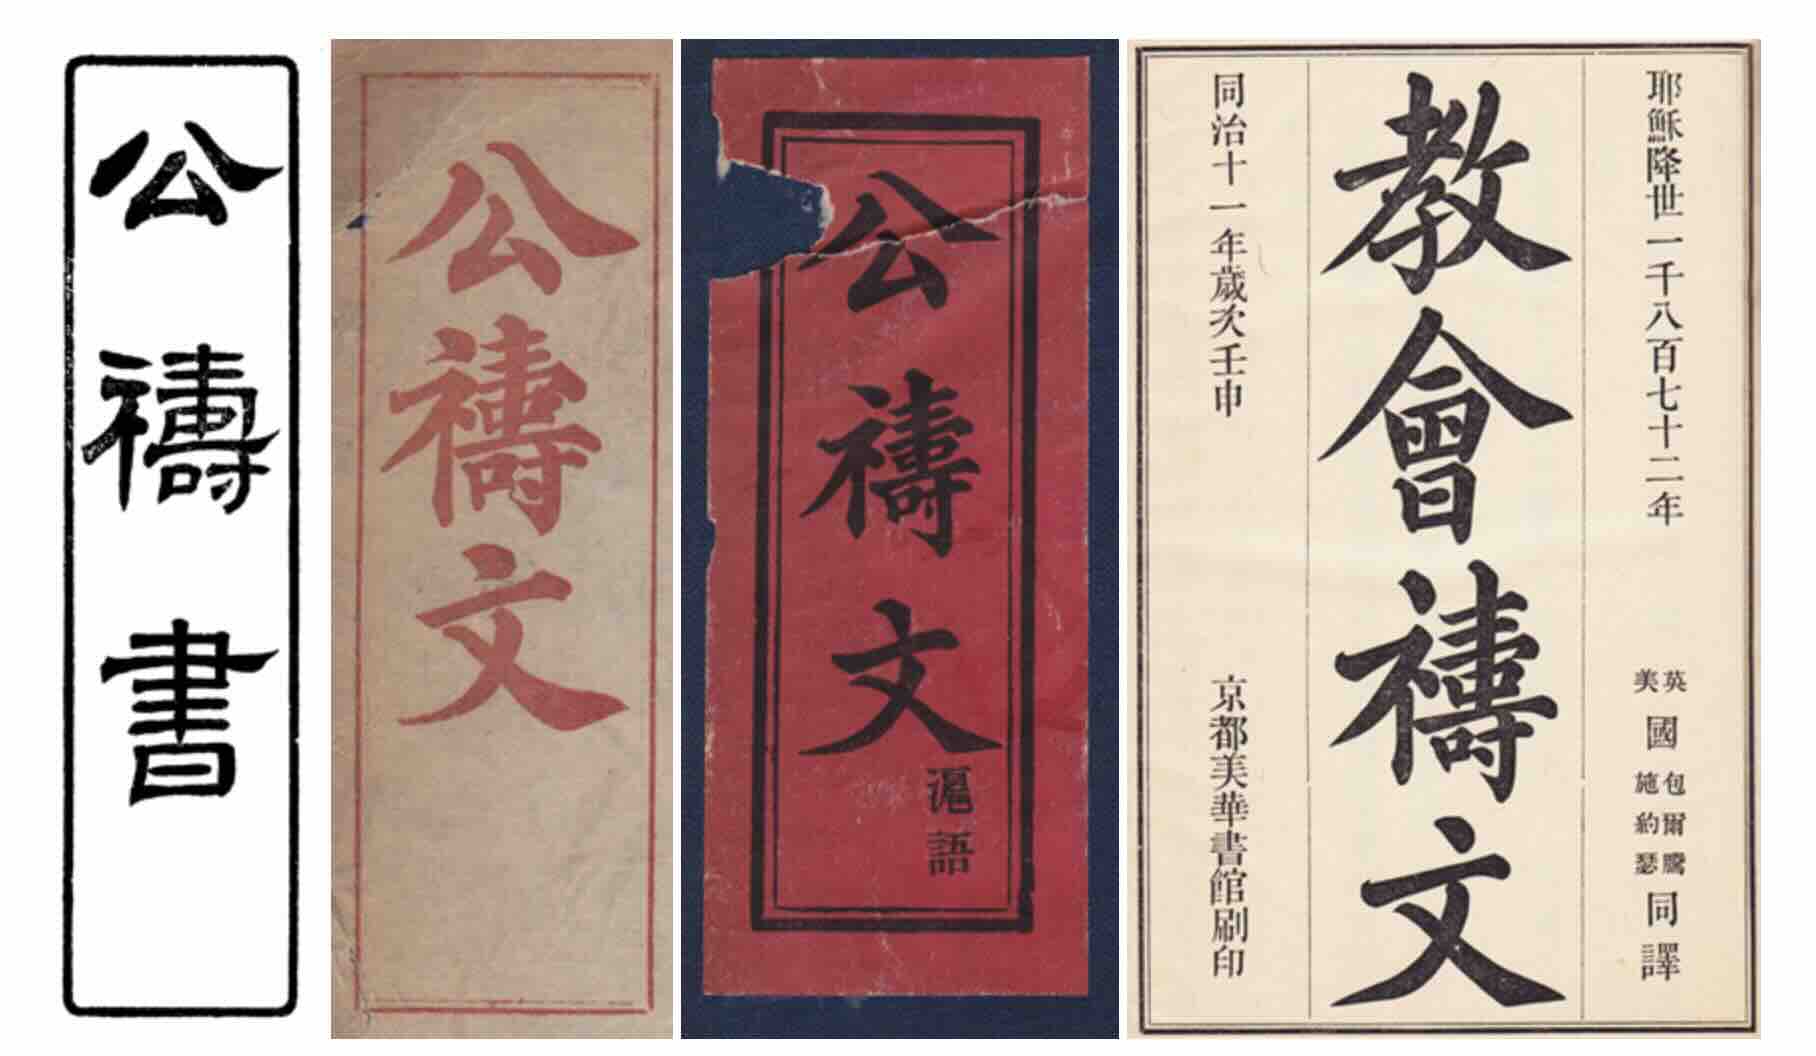 公禱書
公禱文
公禱文
滬語
耶穌降世一千八百七十二年
英國包爾騰
美國施約瑟
同譯
教會禱文
同治十一年歲次壬申
京都美華書館刷印